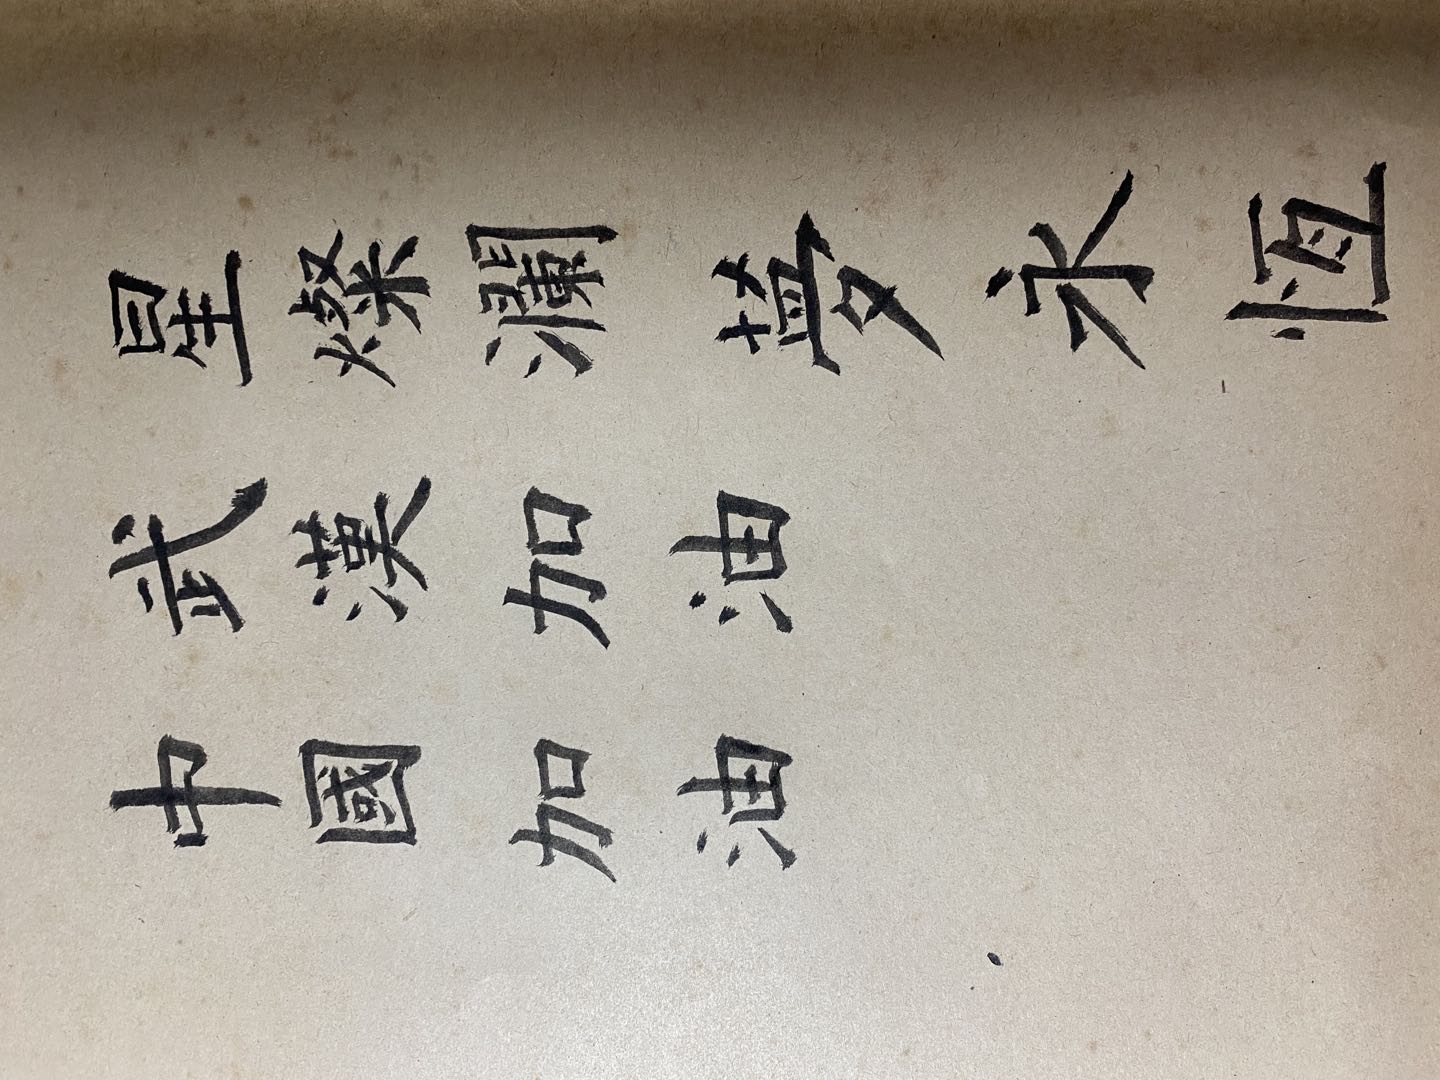 星燦瀾夢永恆
武漢加油
中國加油